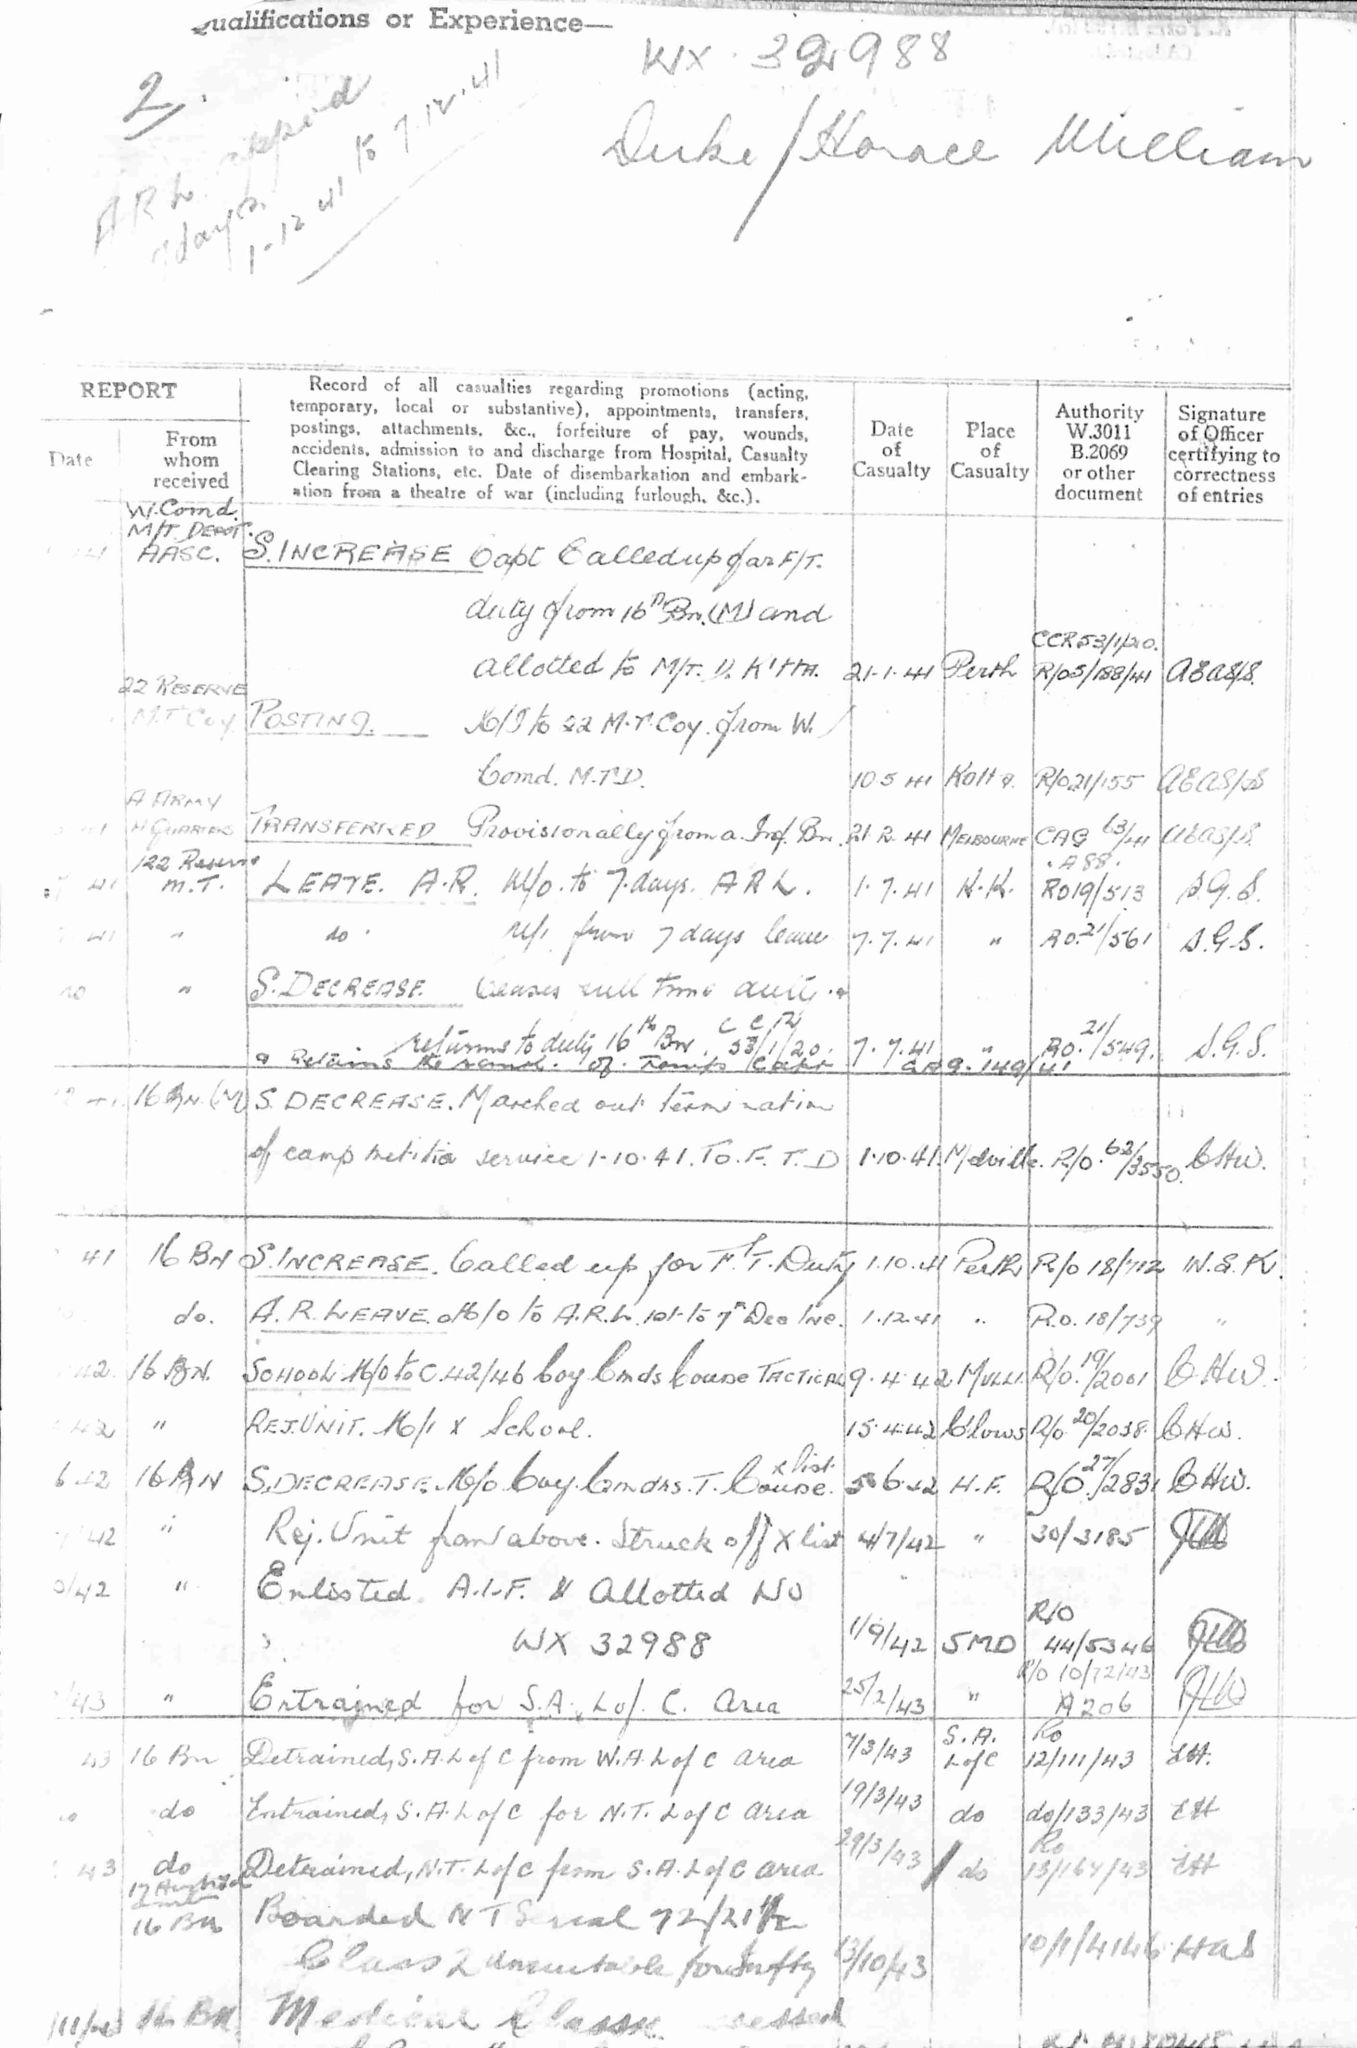 Qualifications or Experience—
WX 32988
2/.
Duke / Horace William
ARL
7 days
1-12 41 to 7.12.41
REPORT
Date
From whom received
Record of all casualties regarding promotions (acting,
temporary, local or substantive), appointments, transfers,
postings, attachments, &c., forfeiture of pay, wounds,
accidents, admission to and discharge from Hospital, Casualty
Clearing Stations, etc. Date of disembarkation and embark-
ation from a theatre of war (including furlough, &c.).
Date of Casualty
Place of Casualty
Authority W.3011 B.2069 or other document
Signature of Officer certifying to correctness of entries
W. Comd.
M/T. Depot.
41 AASC. S. INCREASE Capt Called up for F/T.
duty from 16th Bn. (M) and
CCR 53/1/20.
allotted to M/T. D. K'tta. 21-1-41 Perth R/O5/188/41
22 RESERVE
M.T Coy POSTING. M/I to 22 M.T. Coy. from W.
Comd. M.T.D. 10 5 41 Katta. R/O21/155
A ARMY
H Quarters TRANSFERRED Provisionally from a. Inf. Bn. 21.2.41 MELBOURNE CAG 63/41
A88.
122 Reserve
41 M.T. LEAVE. A.R. M/O. to 7. days. A R L. 1.7.41 K.K. RO19/513 S.G.S.
41 " do. M/I from 7 days leave 7.7.41 " RO.21/561 S.G.S.
do " S. DECREASE. Ceases full time duty. &
returns to duty 16th Bn. CCR 53/1/20. 7.7.41 " RO.21/549. S.G.S.
& Retains the rank. of. Temp Capt CAG. 149/41
41 16 Bn. (M) S. DECREASE. Marched out termination
of camp militia service 1-10-41. To. F. T. D 1.10.41 Melville. R/O.62/3550. CHW.
41 16 BN S. INCREASE. Called up for F.T. Duty 1.10.41 Perth R/O 18/712 W.S.K.
do. A. R. LEAVE. M/O to A.R.L. 1st to 7th Dec Inc. 1.12.41 " R.O. 18/739 "
42 16 BN. SCHOOL M/O to C.42/46 Coy Cmds Course TACTICAL 9.4.42 MULLI. R/O.19/2001 CHW.
42 " REJ. UNIT. M/I X School. 15.4.42 C'lows R/O 20/2038. CHW.
6 42 16 BN S. DECREASE. M/O Coy. Cmdrs. T. Course. X list. 5 6.42 H.F. R/O.27/2831 CHW.
/42 " Rej. Unit from above. Struck off X list 4/7/42 " 30/3185
/42 " Enlisted. A.I.F. & allotted No
WX 32988 1/9/42 5MD R/O 44/5346
/43 " Entrained for S.A. L of. C. area 25/2/43 " R/O 10/72/43 A206
43 16 Bn Detrained, S.A. L of C from W.A. L of C area 7/3/43 S.A. L of C Ro 12/111/43 EH.
do do Entrained, S.A. L of C for N.T. L of C area 19/3/43 do do/133/43 EH
43 do Detrained, N.T. L of C from S.A. L of C area 29/3/43 do Ro 13/164/43 EH
16 Bn Boarded N T Serial 72/21
Class 2 unsuitable for 13/10/43 10/1/4146 HAS
16 Bn Medical Class